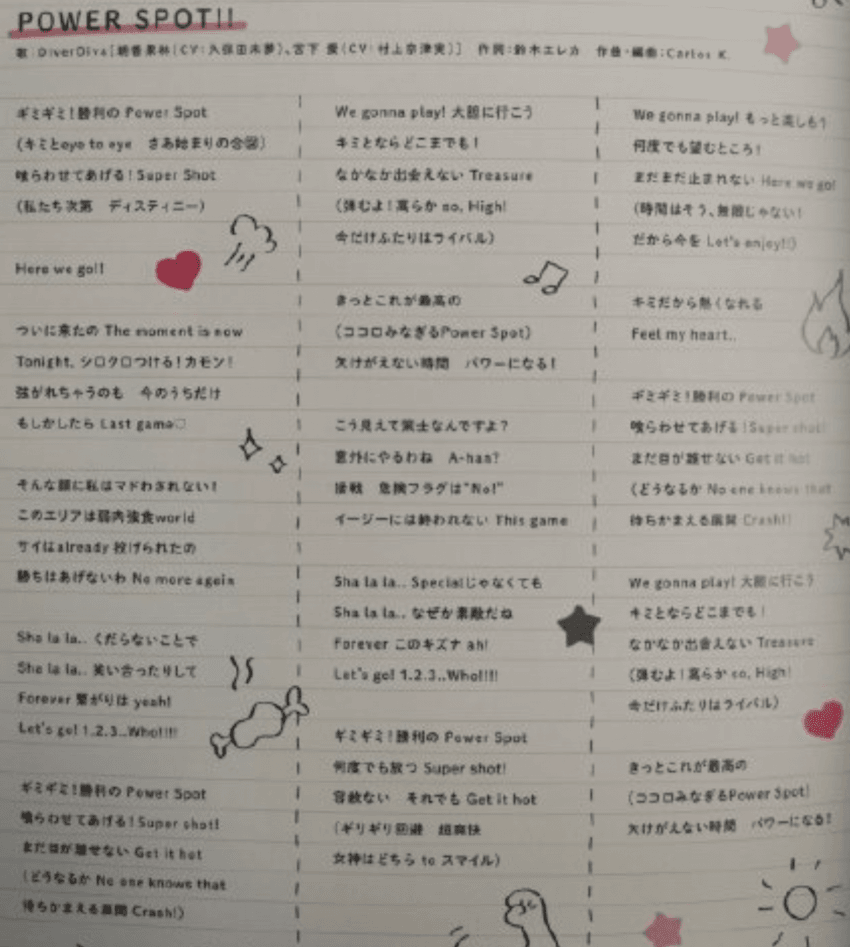 POWER SPOT!!
歌:DiverDiva[朝香果林(CV:久保田未夢)、宮下 愛(CV:村上奈津実)] 作詞:鈴木エレカ 作曲・編曲:Carlos K.
ギミギミ!勝利の Power Spot
(キミとeye to eye さあ始まりの合図)
喰らわせてあげる!Super Shot
(私たち次第 ディスティニー)
Here we go!!
ついに来たの The moment is now
Tonight, シロクロつける!カモン!
強がれちゃうのも 今のうちだけ
もしかしたら Last game♡
そんな顔に私はマドわされない!
このエリアは弱肉強食world
サイはalready 投げられたの
勝ちはあげないわ No more again
Sha la la.. くだらないことで
Sha la la.. 笑い合ったりして
Forever 繋がりは yeah!
Let's go! 1.2.3..Who!!!!
ギミギミ!勝利の Power Spot
喰らわせてあげる!Super shot!
まだ目が離せない Get it hot
(どうなるか No one knows that
待ちかまえる展開 Crash!)
We gonna play! 大胆に行こう
キミとならどこまでも!
なかなか出会えない Treasure
(弾むよ!高らか so, High!
今だけふたりはライバル)
きっとこれが最高の
(ココロみなぎるPower Spot)
欠けがえない時間 パワーになる!
こう見えて策士なんですよ?
意外にやるわね A-han?
接戦 危険フラグは"No!"
イージーには終われない This game
Sha la la.. Specialじゃなくても
Sha la la.. なぜか素敵だね
Forever このキズナ ah!
Let's go! 1.2.3..Who!!!!
ギミギミ!勝利の Power Spot
何度でも放つ Super shot!
容赦ない それでも Get it hot
(ギリギリ回避 超爽快
女神はどちら to スマイル)
We gonna play! もっと楽しもう
何度でも望むところ!
まだまだ止まれない Here we go!
(時間はそう、無限じゃない!
だから今を Let's enjoy!!)
キミだから熱くなれる
Feel my heart..
ギミギミ!勝利の Power Spot
喰らわせてあげる!Super shot!
まだ目が離せない Get it hot
(どうなるか No one knows that
待ちかまえる展開 Crash!)
We gonna play! 大胆に行こう
キミとならどこまでも!
なかなか出会えない Treasure
(弾むよ!高らか so, High!
今だけふたりはライバル)
きっとこれが最高の
(ココロみなぎるPower Spot)
欠けがえない時間 パワーになる!